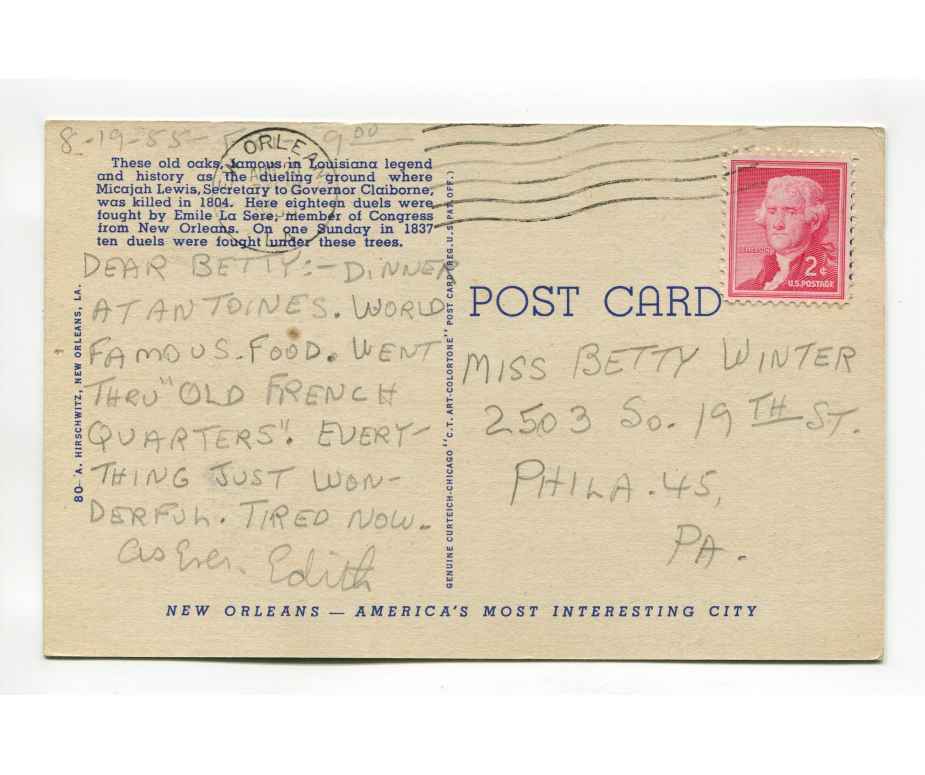 8-19-55- 9 00
N ORLEA
These old oaks, famous in Louisiana legend
and history as the dueling ground where
Micajah Lewis, Secretary to Governor Claiborne,
was killed in 1804. Here eighteen duels were
fought by Emile La Sere, member of Congress
from New Orleans. On one Sunday in 1837
ten duels were fought under these trees.
DEAR BETTY:- DINNER
AT ANTOINES. WORLD
FAMOUS-FOOD. WENT
THRU "OLD FRENCH
QUARTERS". EVERY-
THING JUST WON-
DERFUL. TIRED NOW.
As Ever. Edith
80- A. HIRSCHWITZ, NEW ORLEANS, LA.
GENUINE CURTEICH-CHICAGO "C.T. ART-COLORTONE" POST CARD (REG. U.S. PAT. OFF.)
2¢
U.S. POSTAGE
POST CARD
MISS BETTY WINTER
2503 SO. 19 TH ST.
PHILA. 45,
PA.
NEW ORLEANS — AMERICA'S MOST INTERESTING CITY